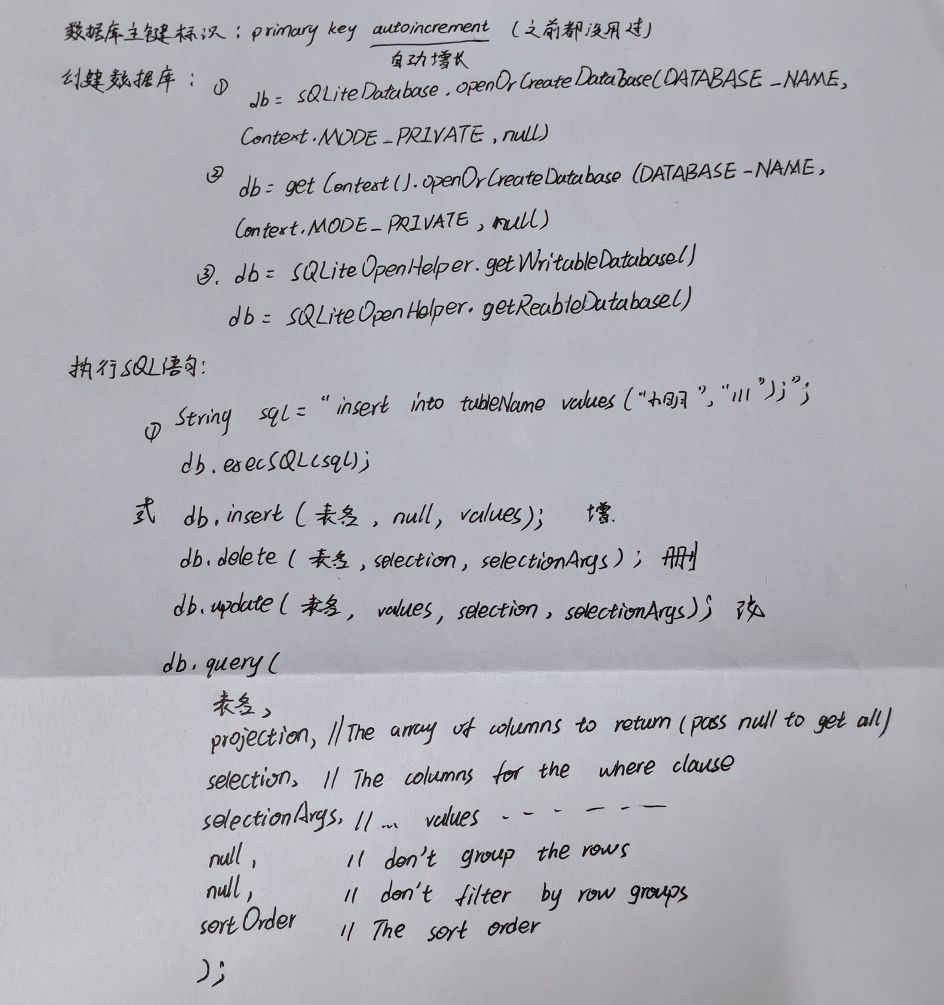 数据库主键标识：primary key autoincrement （之前都没用过）
自动增长
创建数据库：① db = SQLiteDatabase.openOrCreateDatabase(DATABASE_NAME,
Context.MODE_PRIVATE, null)
② db = getContext().openOrCreateDatabase (DATABASE_NAME,
Context.MODE_PRIVATE, null)
③. db = SQLiteOpenHelper.getWritableDatabase()
db = SQLiteOpenHelper.getReableDatabase()
执行SQL语句：
① String sql = "insert into tableName values ("小明", "111");";
db.execSQL(sql);
式 db.insert (表名, null, values); 增
db.delete (表名, selection, selectionArgs); 删
db.update (表名, values, selection, selectionArgs); 改
db.query (
表名,
projection, // The array of columns to return (pass null to get all)
selection, // The columns for the where clause
selectionArgs, // ... values - - - - - -
null, // don't group the rows
null, // don't filter by row groups
sortOrder // The sort order
);